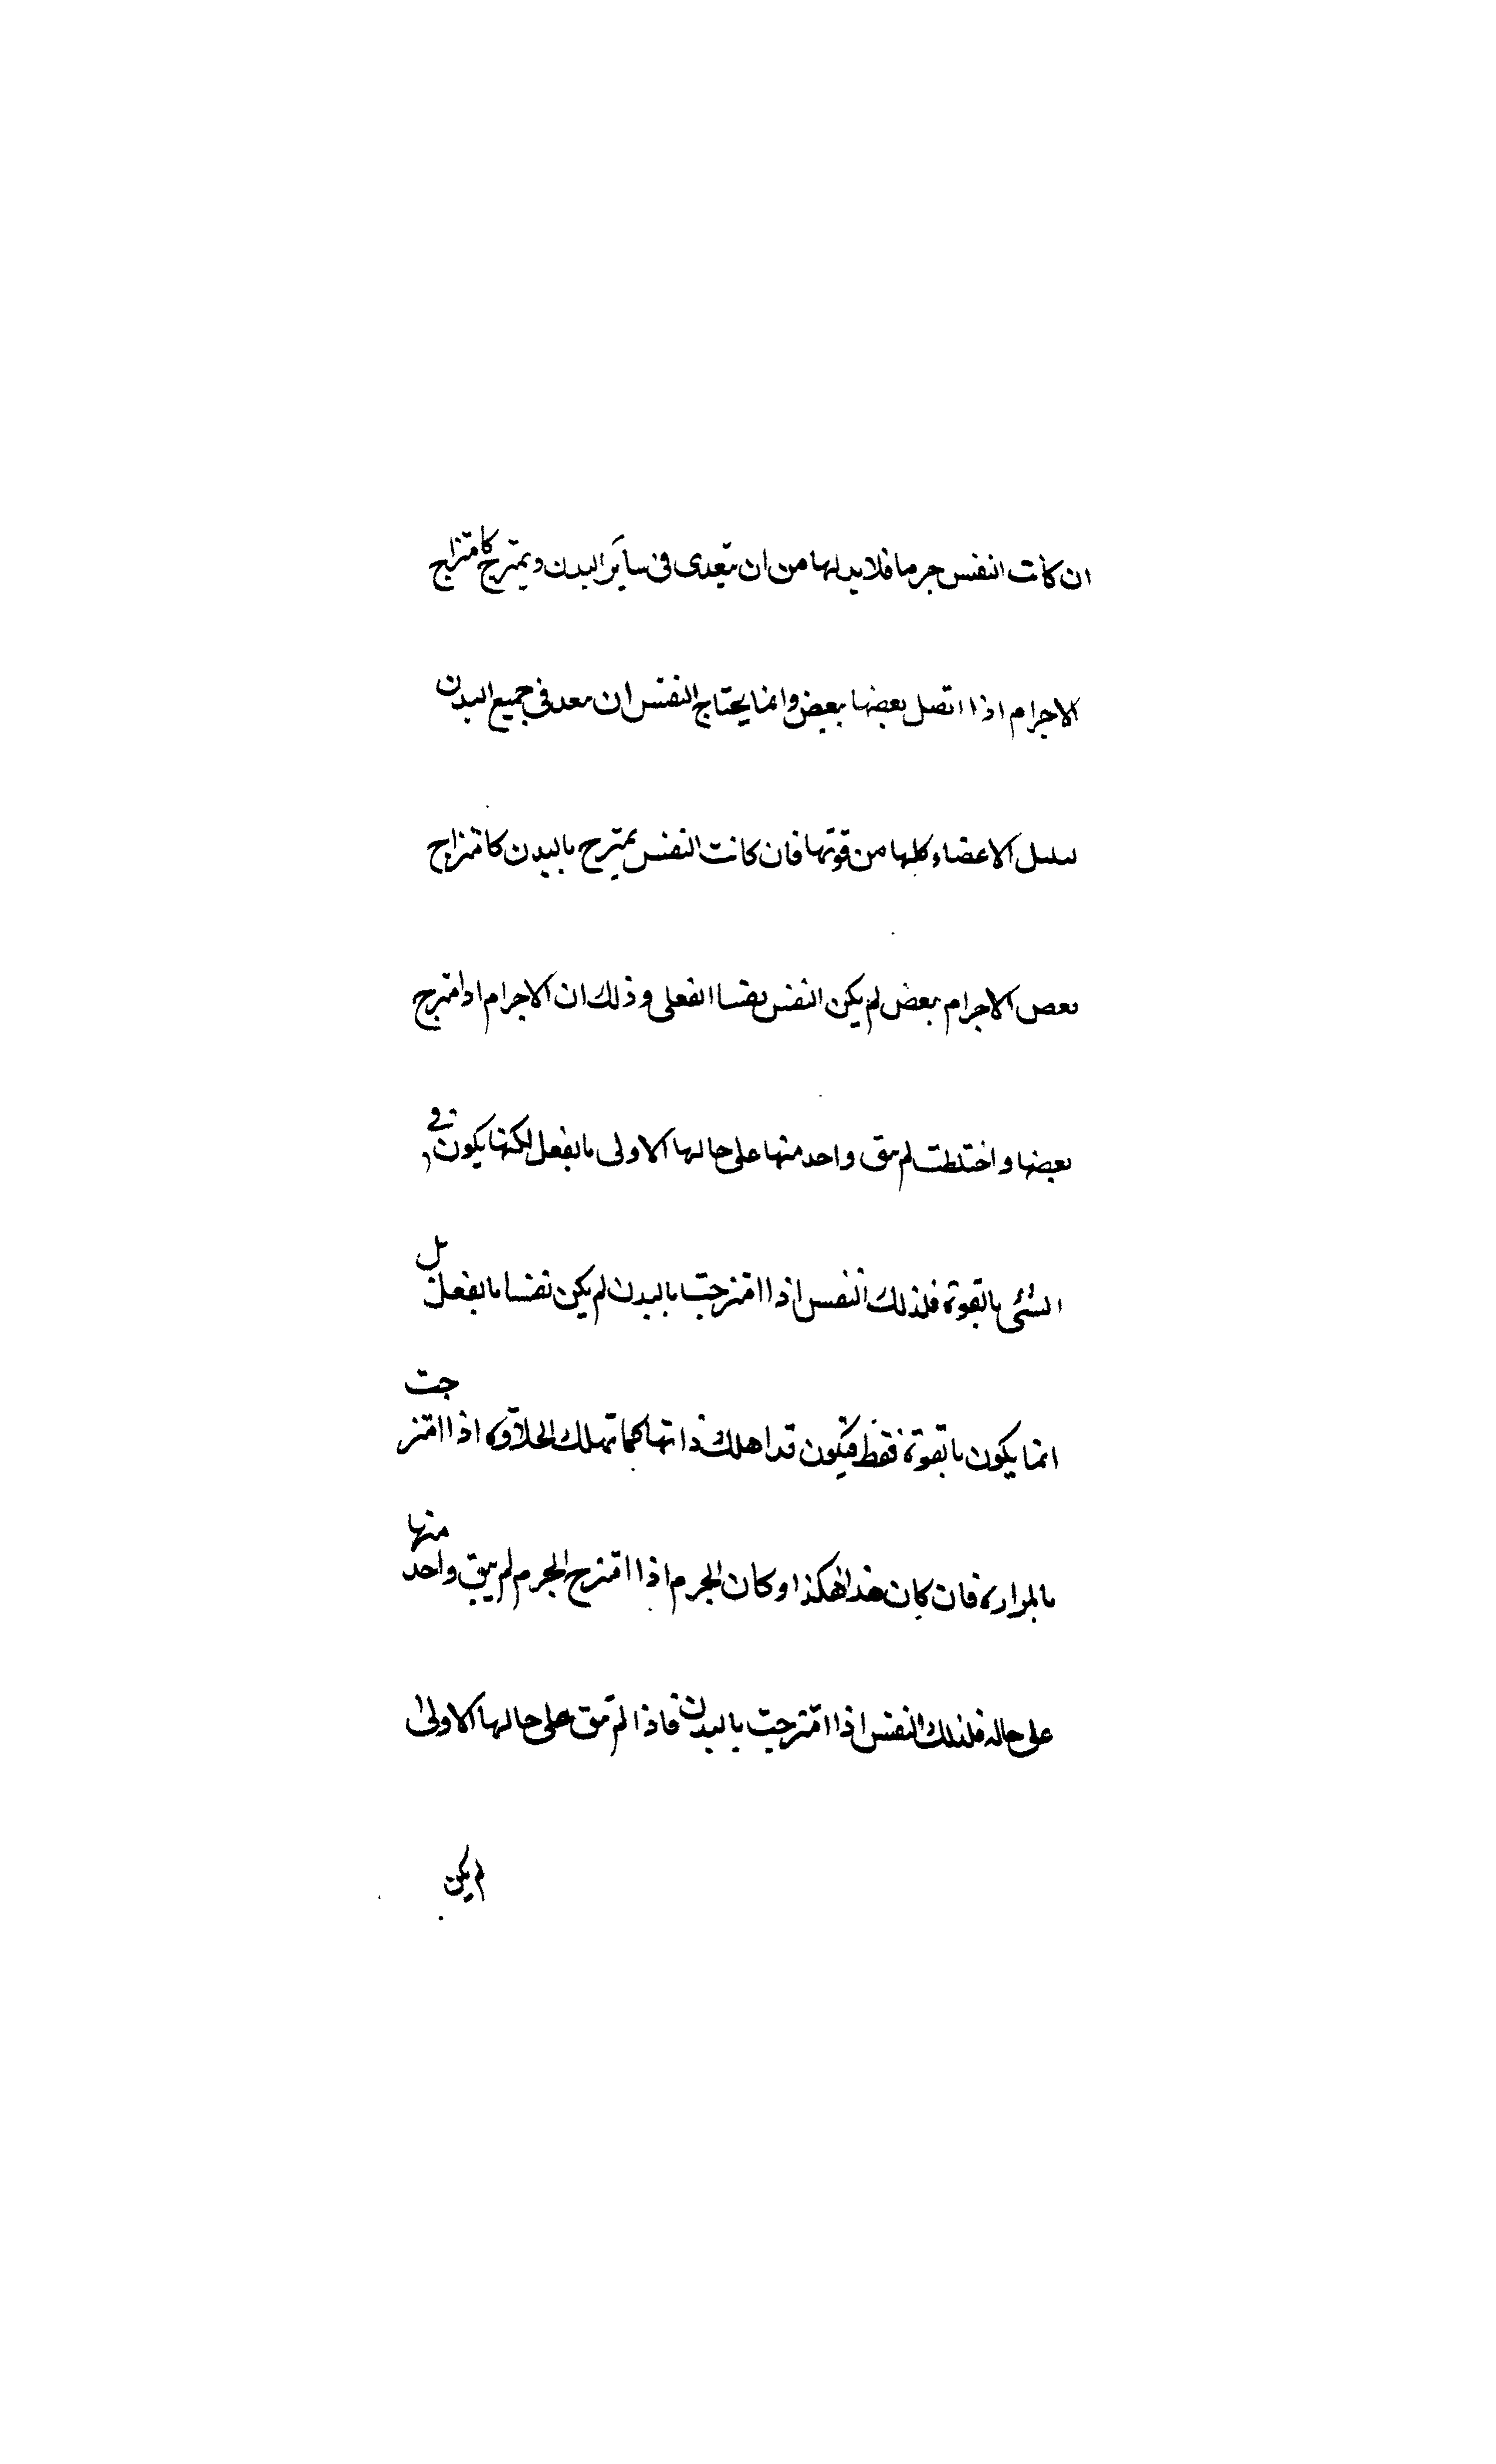 ان كانت النفس جرما فلا بد لها من ان تتعدى فى سائر البدن ويمتزج كامتزاج
الاجرام اذا اتصل بعضها ببعض وانما يحتاج النفس ان معد فى جميع البدن
الاعضاء كلها من قوتها فان كانت النفس يمتزج بالبدن كامتزاج
بعض الاجرام ببعض لم يكن النفس نفسا الفعلى وذلك ان الاجرام اذا امتزج
بعضها واختلطت لم يبق واحد منها على حالها الاولى بالفعل لكنها يكون فى
الشئى بالقوة فلذلك النفس اذا امتزجت بالبدن لم يكن نفسا بالفعل بل
انما يكون بالقوة فقط فيكون قد اهلك ذاتها كما تهلك الحلاوة اذا امتزجت
بالمرارة فان كان هذا هكذا وكان الجرم اذا امتزج الجرم لم يبق واحد منها
على حاله فلذلك النفس اذا امتزجت بالبدن فاذا لم تبق على حالها الاولى
لم يكن